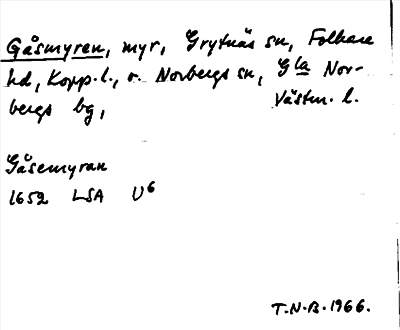 Gåsmyran, myr, Grytnäs sn, Folkare
hd, Kopp. l., o. Norbergs sn, Gla Nor-
bergs bg, Västm. l.
Gåsemyran
1652 LSA U6
T.N.B. 1966.